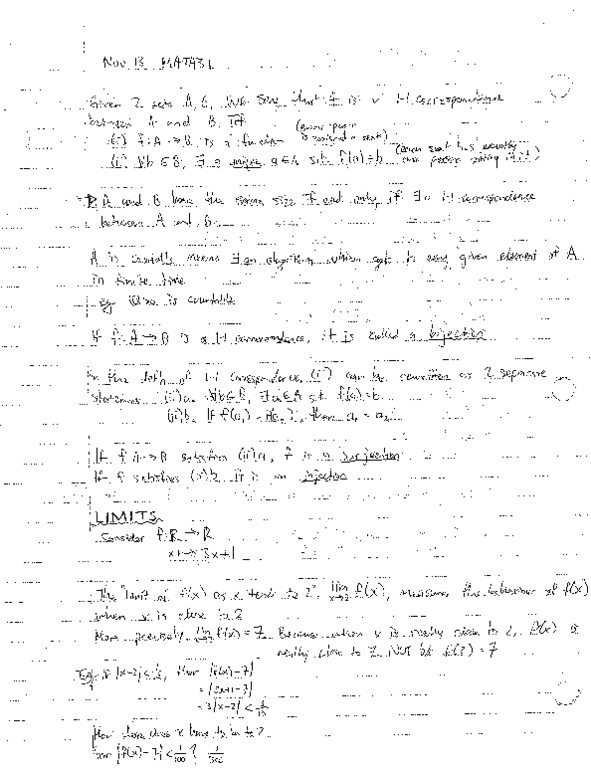 Nov 13 MAT
Given 2 sets A, B, we say that f is a 1-1 correspondence
between A and B if
(i) f: A → B is a function (every person is assigned a seat)
(ii) ∀b ∈ B, ∃ a unique a ∈ A s.t. f(a) = b (Given seat has exactly one person sitting in it)
A and B have the same size if and only if ∃ a 1-1 correspondence
between A and B.
A is countable means ∃ an algorithm which gets to every given element of A
in finite time
eg is countable
If f: A → B is a 1-1 correspondence, it is called a bijection
In the defn of 1-1 correspondence, (ii) can be rewritten as 2 separate
statements (ii)a. ∀b ∈ B, ∃ a ∈ A s.t. f(a) = b
(ii)b. If f(a₁) = f(a₂), then a₁ = a₂
If f: A → B satisfies (ii)a, f is a surjection
If f satisfies (ii)b it is an injection
LIMITS
Consider f: R → R
x ↦ 3x+1
The "limit of f(x) as x tends to 2", lim x→2 f(x), measures the behaviour of f(x)
when x is close to 2
More precisely, lim x→2 f(x) = 7 Because when x is really close to 2, f(x) is
really close to 7. NOT b/c f(2) = 7
if |x-2| < , then |f(x)-7|
= |3x+1-7|
= 3|x-2| <
How close does x have to be to 2
for |f(x)-7| < 1/100 ? 1/300